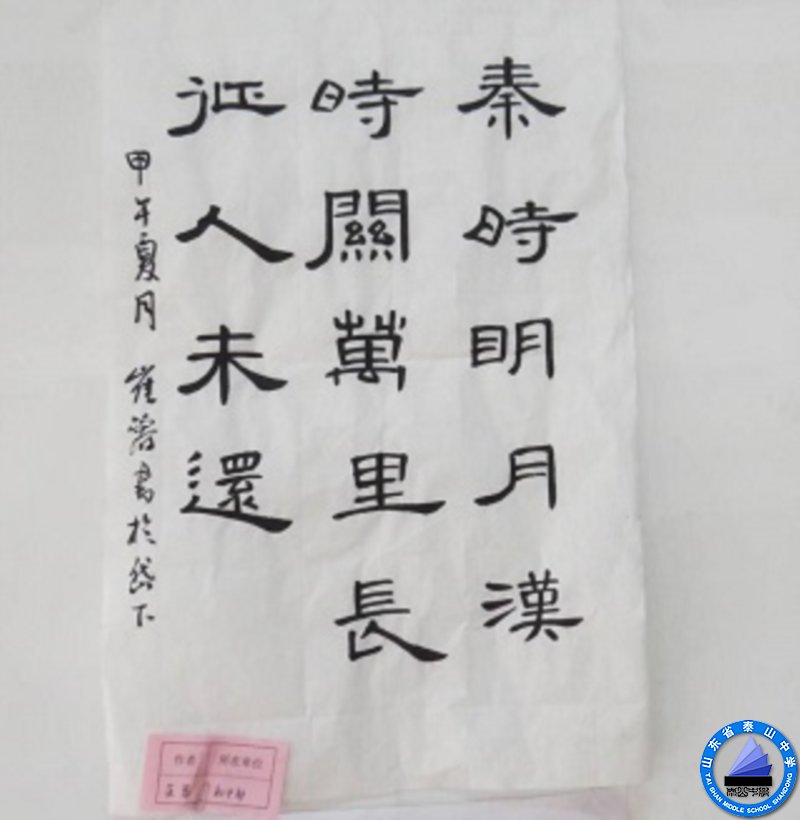 秦時明月漢
時關萬里長
征人未還
甲午夏月 崔濤書於岱下
山东省泰山中学
TAI SHAN MIDDLE SCHOOL SHANDONG